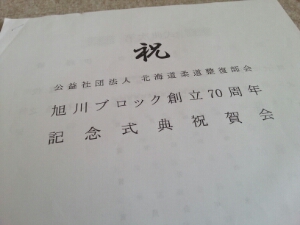 祝
公益社団法人 北海道柔道整復師会
旭川ブロック創立70周年
記念式典祝賀会